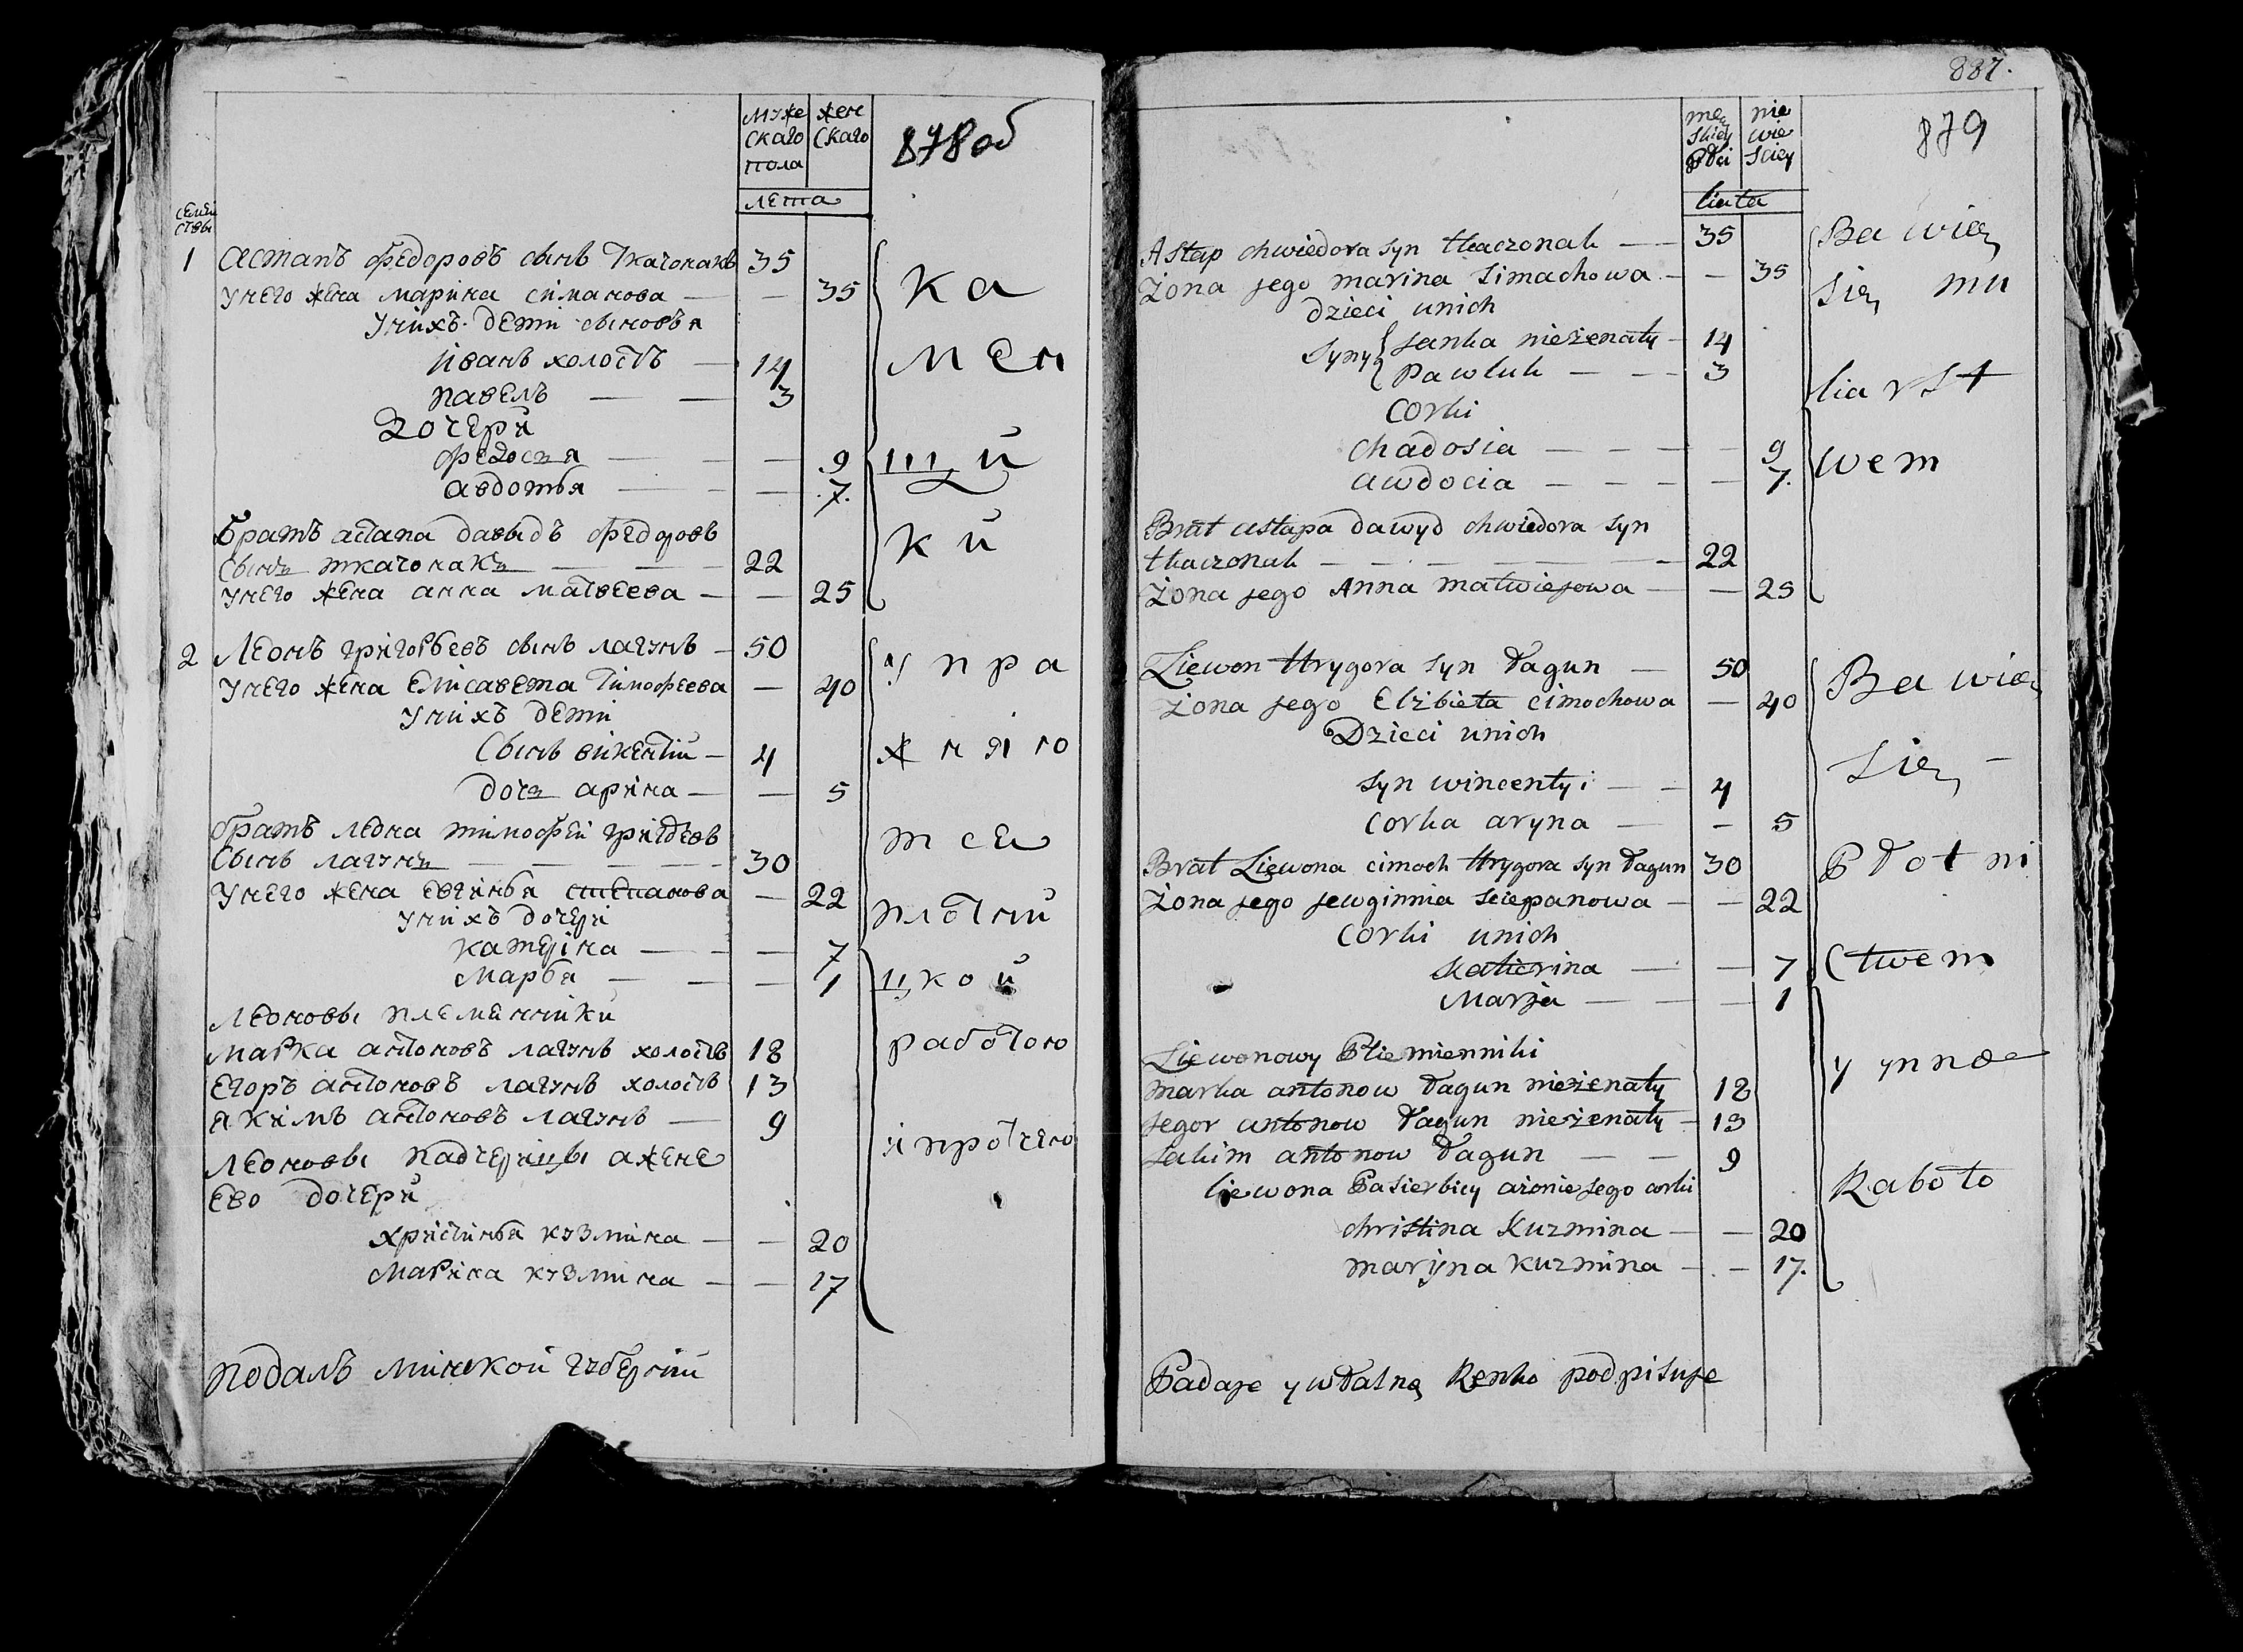 муже жен
скаго скаго
пола
878 об
лета
семей
ствы
1 Астапъ федоровъ сынъ Ткачонакъ 35
унего жена марина симанова — — 35
унихъ дети сыновья
иванъ холостъ — 14
павелъ — — 3
Дочери
федосья — — — 9
авдотья — — — 7.
братъ астапа давыдъ федоровъ
сынъ ткачонакъ — — — 22
унего жена анна матвеева — — 25
ка
мен
щи
ки
2 Леонъ григорьевъ сынъ лагунъ — 50
унего жена елисавета тимофеева — 40
унихъ дети
сынъ викентий — 4
дочь арина — — 5
братъ леона тимофей григорьевъ
сынъ лагунъ — — — 30
унего жена евгинья степанова — 22
унихъ дочери
катерина — — — 7
марья — — — 1
Леоновы племянники
марка антоновъ лагунъ холостъ 18
егоръ антоновъ лагунъ холостъ 13
якимъ антоновъ лагунъ — 9
леоновы падчерицы ажене
ево дочери
христинья кузмина — — 20
марина кузмина — — 17
упра
жняю
тся
плотни
цкой
работою
ипротчею
подалъ минской губерний
887.
męz nie
skiey wie
Płci sciey
879
liata
Astap chwiedora syn tkaczonak — 35
Żona jego marina simachowa — — 35
dzieci unich
synŷ Janka nieżenaty — 14
Pawluk — — — 3
corki
chadosia — — — — 9
awdocia — — — — 7.
Brat astapa dawyd chwiedora syn
tkaczonak — — — — — 22
Żona jego Anna matwiejowa — — 25
Bawie
sie mu
liarst
wem
Liewon Hrygora syn łagun — 50
żona jego Elżbieta cimochowa — 40
Dzieci unich
syn wincentyi — — 4
corka aryna — — 5
Brat Liewona cimoch Hrygora syn łagun 30
Żona jego jewginnia sciepanowa — — 22
corki unich
katierina — — 7
Marja — — — 1
Liewonowy Pliemienniki
marka antonow łagun nieżenaty 18
jegor antonow łagun nieżenaty — 13
jakim antonow łagun — — 9
liewona Pasierbicy ażonie jego corki
christina Kuzmina — — 20
maryna kuzmina — — 17.
Bawie
sie —
Płotni
ctwem
y ynnae
Raboto
Padaje ywłasną Renko podpisuje